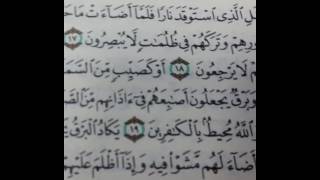 ـلِ ٱلَّذِى ٱسْتَوْقَدَ نَارًا فَلَمَّآ أَضَآءَتْ مَا حَـ
ـورِهِمْ وَتَرَكَهُمْ فِى ظُلُمَـٰتٍ لَّا يُبْصِرُونَ ١٧
ـمْ لَا يَرْجِعُونَ ١٨ أَوْ كَصَيِّبٍ مِّنَ ٱلسَّمَـ
وَبَرْقٌ يَجْعَلُونَ أَصَـٰبِعَهُمْ فِىٓ ءَاذَانِهِم مِّنَ ٱلصَّـ
ٱللَّهُ مُحِيطٌۢ بِٱلْكَـٰفِرِينَ ١٩ يَكَادُ ٱلْبَرْقُ يَـ
أَضَآءَ لَهُم مَّشَوْا۟ فِيهِ وَإِذَآ أَظْلَمَ عَلَيْهِـ